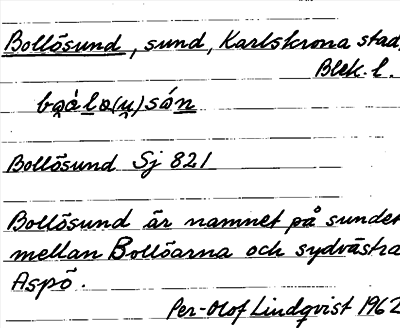 Bollösund, sund, Karlskrona stad,
Blek. l.
Bollösund Sj 821
Bollösund är namnet på sundet
mellan Bollöarna och sydvästra
Aspö.
Per-Olof Lindqvist 1962